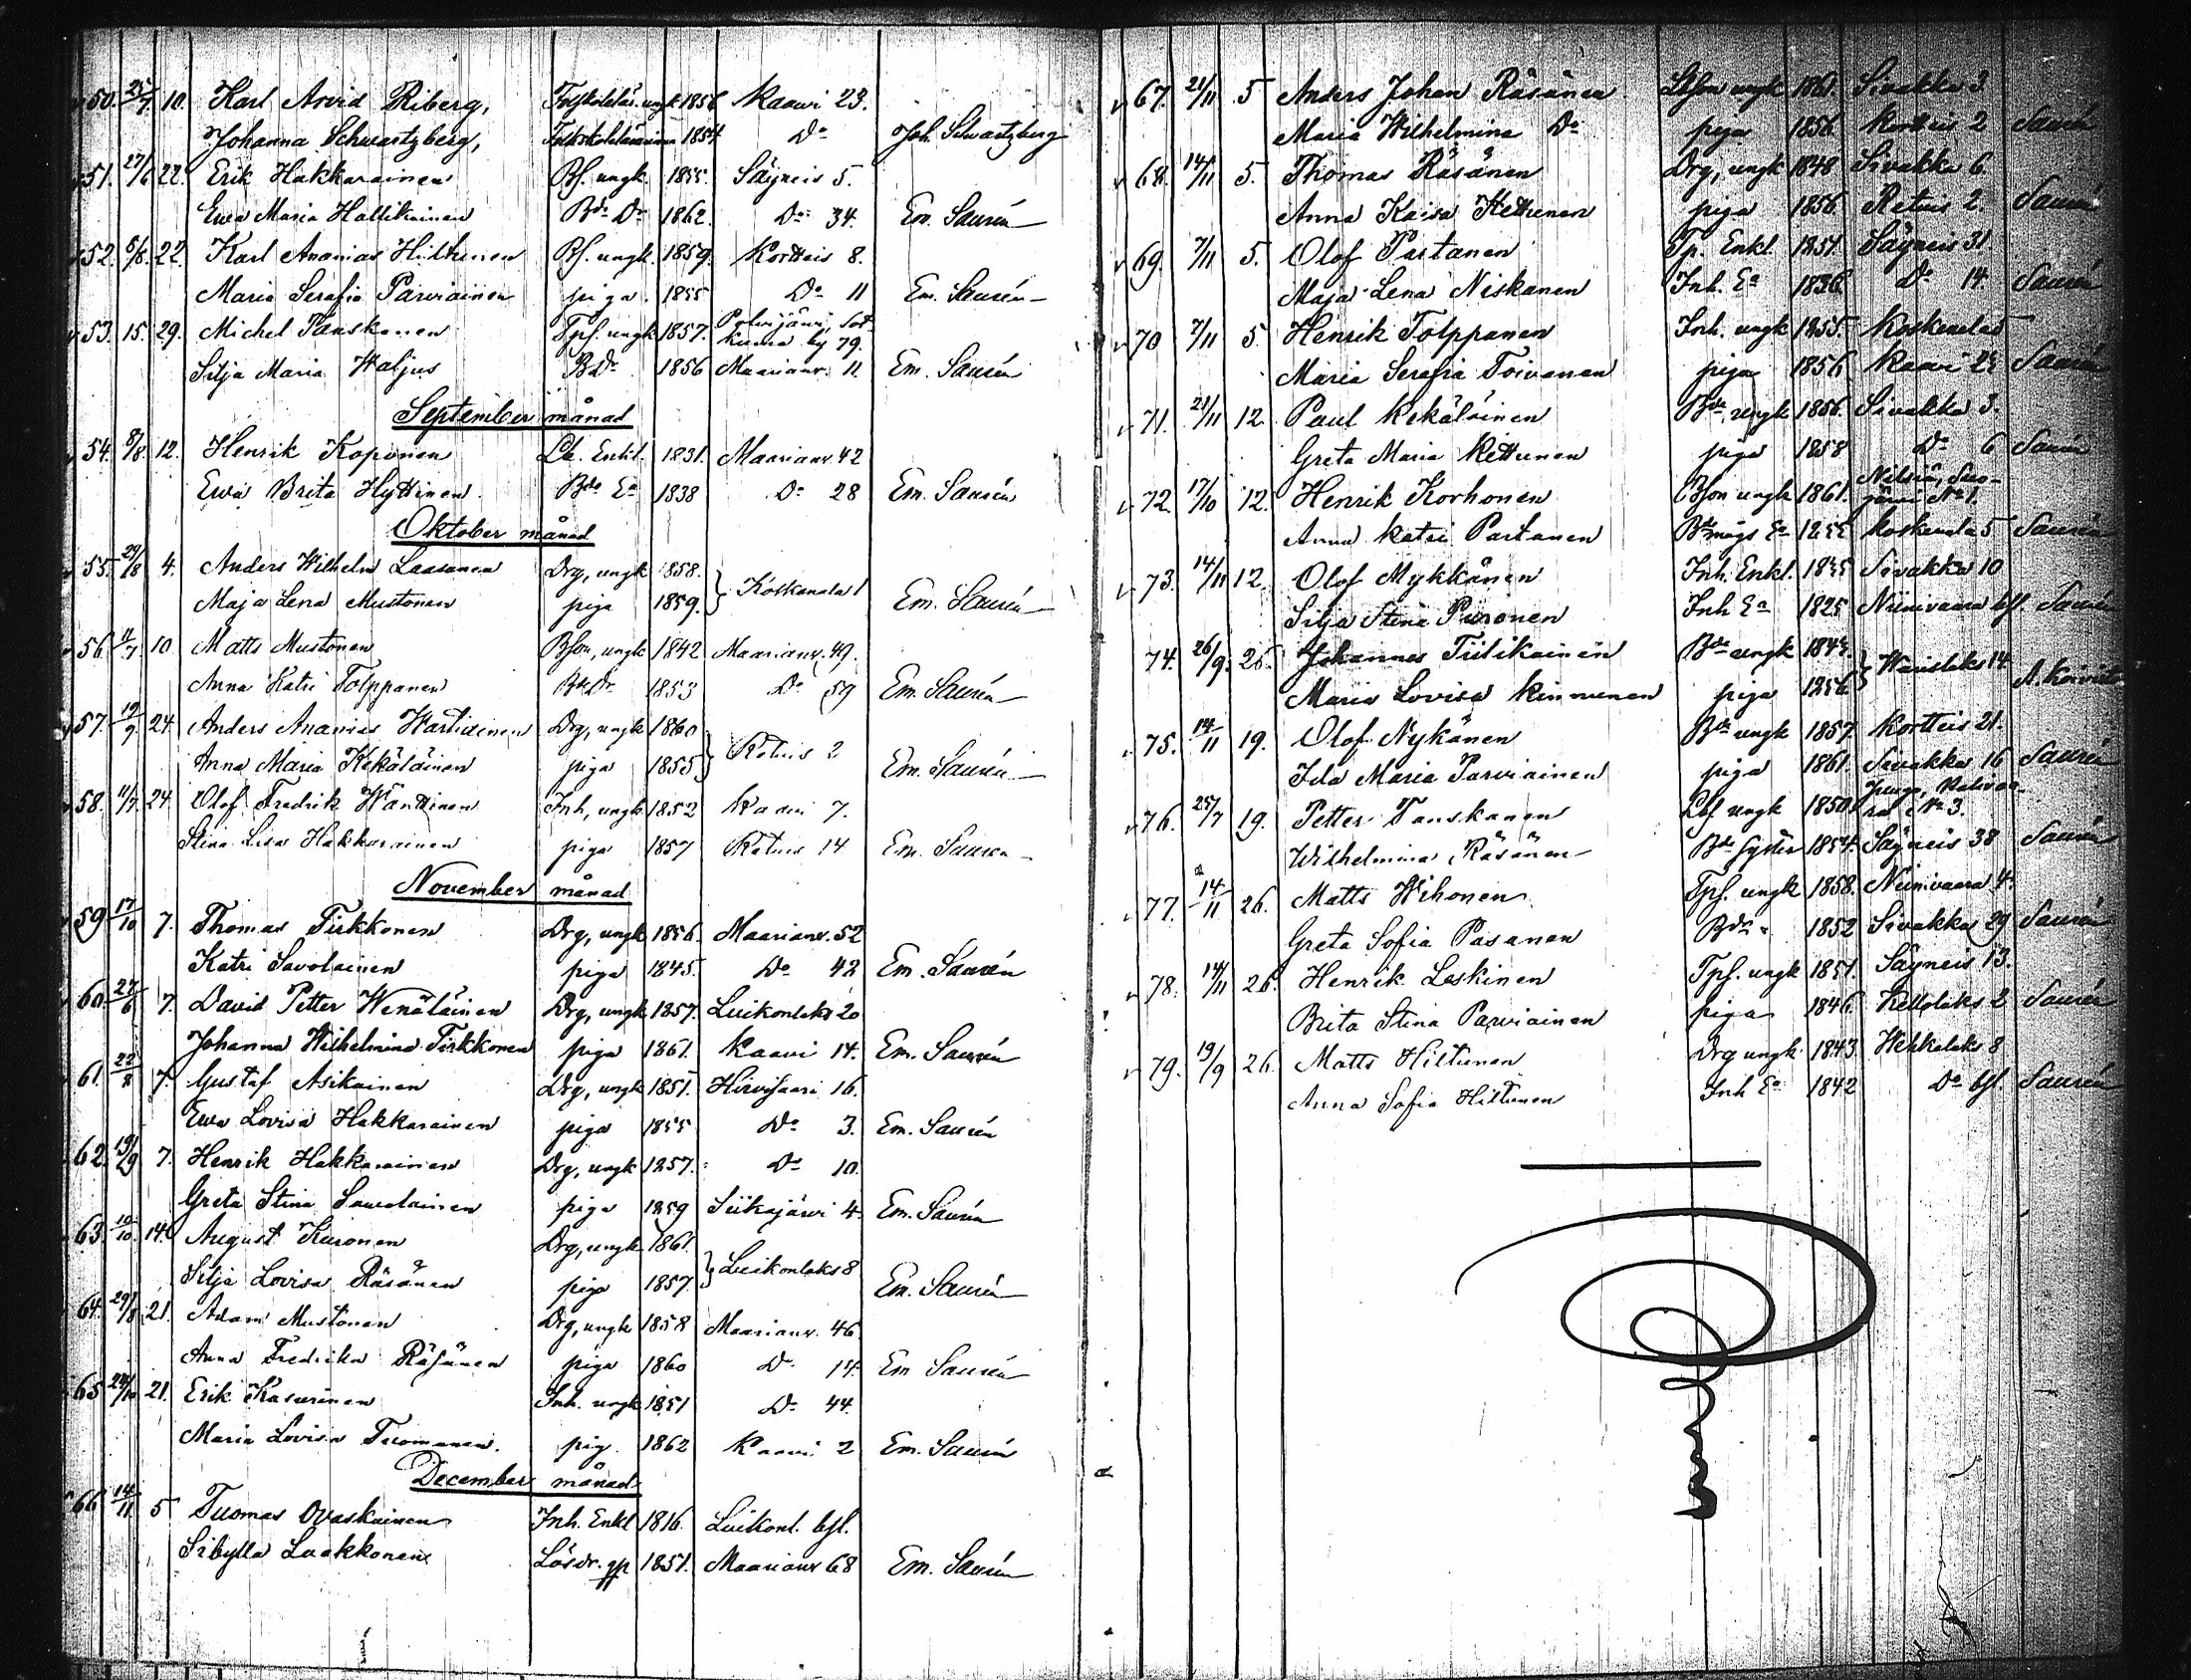 50. 25/7. 10. Karl Arvid Riberg, Folkskolelär. ungk 1856 Kaawi 23.
Johanna Schwartzberg, Folkskolelärarinna 1854 Do Joh. Schwartzberg
51. 27/6 22. Erik Hakkarainen Bf. ungk. 1855. Säyneis 5.
Ewa Maria Hallikainen Bdr Dr 1862. Do 34. Em. Saurén
52. 5/8. 22. Karl Ananias Hiltunen Bf. ungk. 1859. Kortteis 8.
Maria Serafia Parviainen piga. 1855 Do 11 Em. Saurén
53. 15. 29. Michel Tanskanen Tpf. ungk 1857. Polvijärvi, Sot-
kuma by 79.
Silja Maria Waljus BDr 1856 Maarianv. 11. Em. Saurén
September månad
54. 8/8. 12. Henrik Koponen Lb. Enkl. 1831. Maarianv. 42
Ewa Brita Hyttinen Bde Ea 1838 Do 28 Em. Saurén
Oktober månad
55. 29/8 4. Anders Wilhelm Laasanen Drg, ungk 1858.
Maja Lena Mustonen piga 1859. } Koskenala 1 Em. Saurén
56. 11/7. 10 Matts Mustonen Bson, ungk 1842 Maarianv. 49.
Anna Katri Tolppanen Bde Dr 1853 Do 59 Em. Saurén
57. 12/9. 24. Anders Ananias Hartikainen Drg, ungk 1860
Anna Maria Kekäläinen piga 1855 } Retuis 2 Em. Saurén
58. 11/7. 24. Olof Fredrik Wänttinen Inh, ungk 1852 Kaavi 7.
Stina Lisa Hakkarainen piga 1857 Retuis 14 Em. Saurén
November månad
59 17/10 7. Thomas Tirkkonen Drg, ungk 1856. Maarianv. 52
Katri Savolainen piga 1845. Do 42 Em. Saurén
60. 27/6 7. David Petter Wenäläinen Drg, ungk 1857. Luikonlaks 20
Johanna Wilhelmina Tirkkonen piga 1861. Kaavi 14. Em. Saurén
61. 22/8 7. Gustaf Asikainen Drg, ungk 1851. Hirvisaari 16.
Ewa Lovisa Hakkarainen piga 1855 Do 3. Em. Saurén
62. 19/9 7. Henrik Hakkarainen Drg, ungk 1857. Do 10.
Greta Stina Sawolainen piga 1859 Siikajärvi 4. Em. Saurén
63. 10/10. 14. August Kuronen Drg, ungk 1861.
Silja Lovisa Räsänen piga 1857. } Luikonlaks 8 Em. Saurén
64. 29/8 21. Adam Mustonen Drg, ungk 1858 Maarianv. 46
Anna Fredrika Räsänen piga 1860 Do 14. Em Saurén
65 24/10 21. Erik Kasurinen Inh. ungk 1851 Do 44.
Maria Lovisa Tuomanen. pig. 1862 Kaavi 2 Em. Saurén
December månad
66 14/11 5 Tuomas Ovaskainen Inh. Enkl 1816. Luikonl. bfl.
Sibylla Laakkonen Lösdr. qp 1851. Maarianv 68 Em. Saurén
67. 21/11 5 Anders Johan Räsänen Lbson ungk 1861. Sivakka 3.
Maria Wilhelmina Do piga 1856. Kortteis 2 Saurén
68. 14/11 5. Thomas Räsänen Drg, ungk 1848 Sivakka 6.
Anna Kaisa Kettunen piga 1856. Retuis 2. Saurén
69. 7/11 5. Olof Partanen Tp. Enkl. 1851. Säyneis 31.
Maja Lena Niskanen Inh. Ea 1836. Do 14. Saurén
70 7/11 5. Henrik Tolppanen Inh. ungk 1855. Koskenala 5
Maria Serafia Toivanen piga 1856 Kaavi 25 Saurén
71. 21/11 12. Paul Kekäläinen Bde ungk 1856. Sivakka 3.
Greta Maria Kettunen piga 1858 Do 6 Saurén
72. 17/10 12. Henrik Korhonen Bson ungk 1861. Nilsiä, Suo-
järvi No 1.
Anna Katri Partanen Bdemågs Ea 1855 Koskenala 5 Saurén
73. 14/11 12. Olof Mykkänen Inh. Enkl. 1845 Sivakka 10
Silja Stina Puronen Inh Ea 1825 Niinivaara bfl. Saurén
74. 26/9. 26. Johannes Tiilikainen Bde ungk 1845.
Maria Lovisa Kinnunen piga 1856 } Waislaks 14 A. Koivisto
75. 14/11 19. Olof Nykänen Bde ungk 1857. Kortteis 21.
Ida Maria Parviainen piga 1861. Sivakka 16 Saurén
76. 25/7 19. Petter Tanskanen Lbf ungk 1850. Juuga, Wativaa-
ra No 3.
Wilhelmina Räsänen Bde syster 1854. Säyneis 38 Saurén
77. 14/11 26. Matts Wihonen Tpf. ungk 1858. Niinivaara 4.
Greta Sofia Pasanen BDr 1852 Sivakka 29 Saurén
78. 14/11 26. Henrik Leskinen Tpf. ungk 1851. Säyneis 13.
Brita Stina Parviainen piga 1846. Kettolaks 2 Saurén
79. 19/9 26. Matts Hiltunen Drg ungk 1843. Wehkalaks 8
Anna Sofia Hiltunen Inh Ea 1842 Do bfl. Saurén